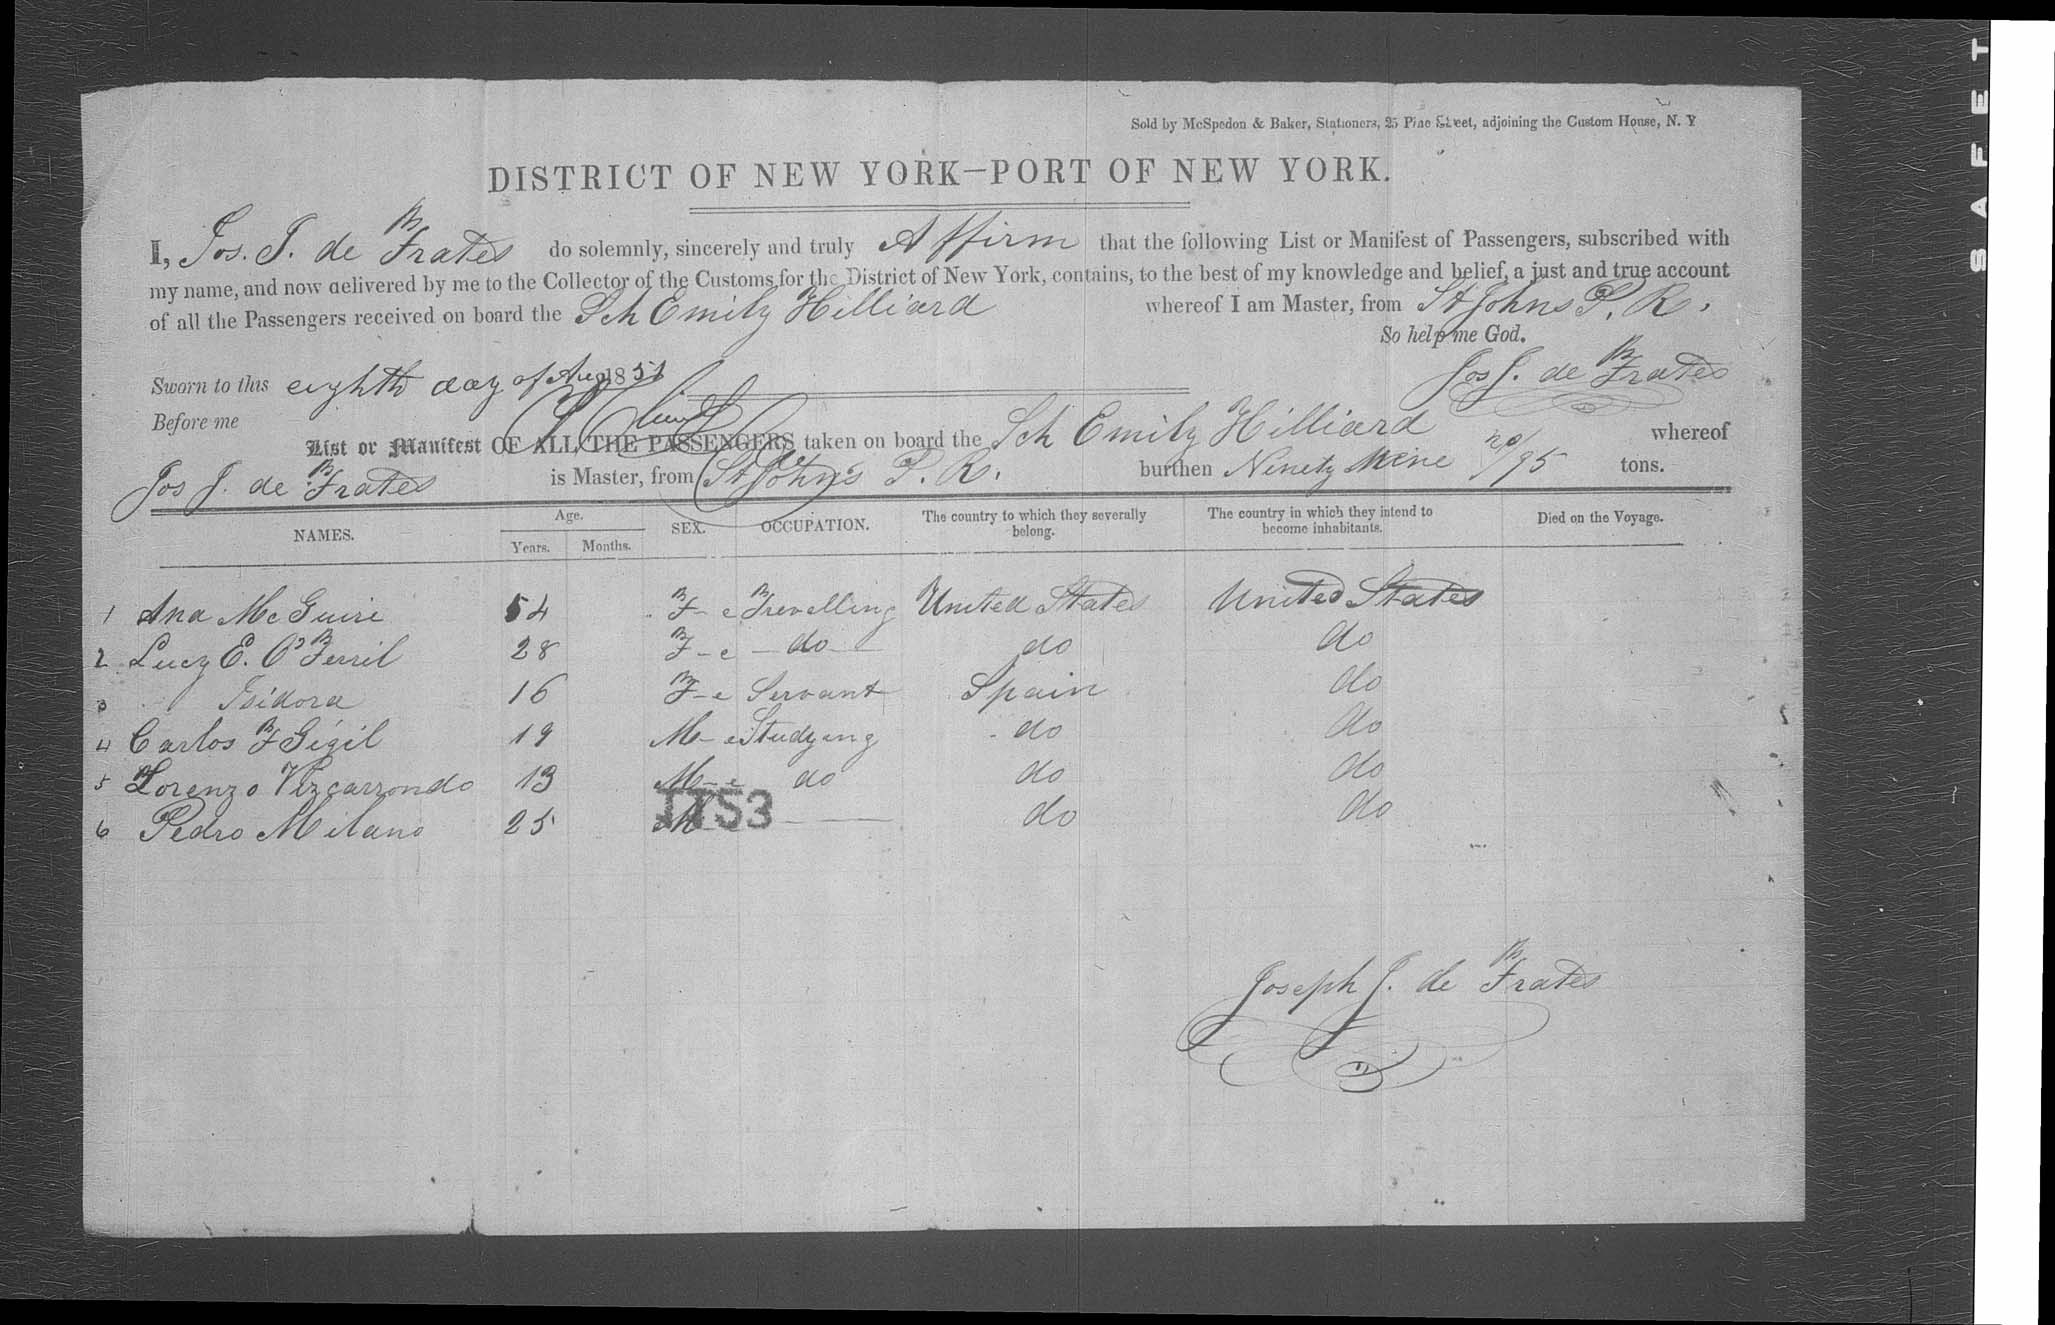 Sold by McSpedon & Baker, Stationers, 25 Pine Street, adjoining the Custom House, N. Y
DISTRICT OF NEW YORK—PORT OF NEW YORK.
I, Jos. J. de Frates do solemnly, sincerely and truly Affirm that the following List or Manifest of Passengers, subscribed with
my name, and now delivered by me to the Collector of the Customs for the District of New York, contains, to the best of my knowledge and belief, a just and true account
of all the Passengers received on board the Sch Emily Hilliard whereof I am Master, from St Johns P. R.
So help me God.
Sworn to this eighth day of Aug 1851
Jos J. de Frates
Before me
List or Manifest OF ALL THE PASSENGERS taken on board the Sch Emily Hilliard whereof
Jos J. de Frates is Master, from St Johns P. R. burthen Ninety Nine /95 tons.
NAMES. Age. Years. Months. SEX. OCCUPATION. The country to which they severally belong. The country in which they intend to become inhabitants. Died on the Voyage.
1 Ana McGuire 54 F-e Trevelling United States United States
2 Lucy E. O'Ferril 28 F-e do do do
3 Isidora 16 F-e Servant Spain do
4 Carlos F Gigil 19 M-e Studying do do
5 Lorenzo Vizcarrondo 13 M-e do do do
6 Pedro Milano 25 M do do
1753
Joseph J. de Frates
SAFET